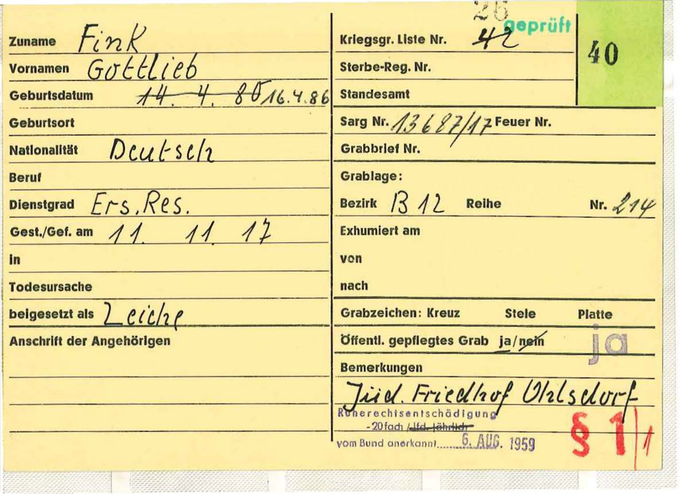 Zuname Fink
Vornamen Gottlieb
Geburtsdatum 14. 4. 80 16.4.86
Geburtsort
Nationalität Deutsch
Beruf
Dienstgrad Ers. Res.
Gest./Gef. am 11. 11. 17
in
Todesursache
beigesetzt als Leiche
Anschrift der Angehörigen
26
geprüft
Kriegsgr. Liste Nr. 42
40
Sterbe-Reg. Nr.
Standesamt
Sarg Nr. 13687/17 Feuer Nr.
Grabbrief Nr.
Grablage:
Bezirk B 12 Reihe Nr. 214
Exhumiert am
von
nach
Grabzeichen: Kreuz Stele Platte
Öffentl. gepflegtes Grab ja/nein ja
Bemerkungen
Jüd. Friedhof Ohlsdorf
Ruherechtsentschädigung
-20fach / lfd. jährlich
vom Bund anerkannt 6. AUG. 1959
§ 1/1